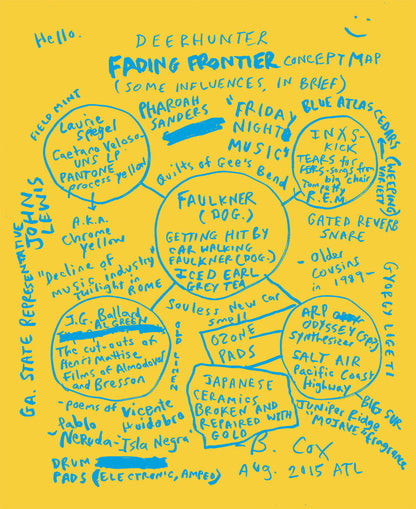 Hello.
DEERHUNTER
FADING FRONTIER CONCEPT MAP
(SOME INFLUENCES, IN BRIEF)
FIELD MINT
Laurie
Spegel
Caetano Veloso-
UNS LP
PANTONE
process yellow
PHAROAH
SANDERS
"FRIDAY
NIGHT
MUSIC"
BLUE ATLAS CEDARS
(WEEPING)
VARIETY
INXS-
KICK
TEARS for
FEARS-songs from
big chair
Tom petty
R.E.M
Quilts of Gee's Bend
FAULKNER
(DOG.)
GETTING HIT BY
CAR WALKING
FAULKNER (DOG.)
ICED EARL
GREY TEA
A.K.A.
Chrome
yellow
GATED REVERB
SNARE
GA. STATE REPRESENTATIVE
JOHN
LEWIS
"Decline of
music industry"
Twilight in
ROME
- Older
Cousins
in 1989-
GYORGY LIGETI
J.G. Ballard
AL GREEN
The cut-outs of
Henri Mattise
Films of Almodovar
and Bresson
OLD LINEN
Souless New Car
smell
OZONE
PADS
ARP
ODYSSEY
Synthesizer
SALT AIR
Pacific Coast
Highway
JAPANESE
CERAMICS
BROKEN AND
REPAIRED WITH
GOLD
BIG SUR
Juniper Ridge
"MOJAVE" fragrance
-poems of Vicente
Huidobro
-Pablo
Neruda-"Isla Negra"
DRUM
PADS (ELECTRONIC, AMPED)
-B. COX
AUG. 2015 ATL